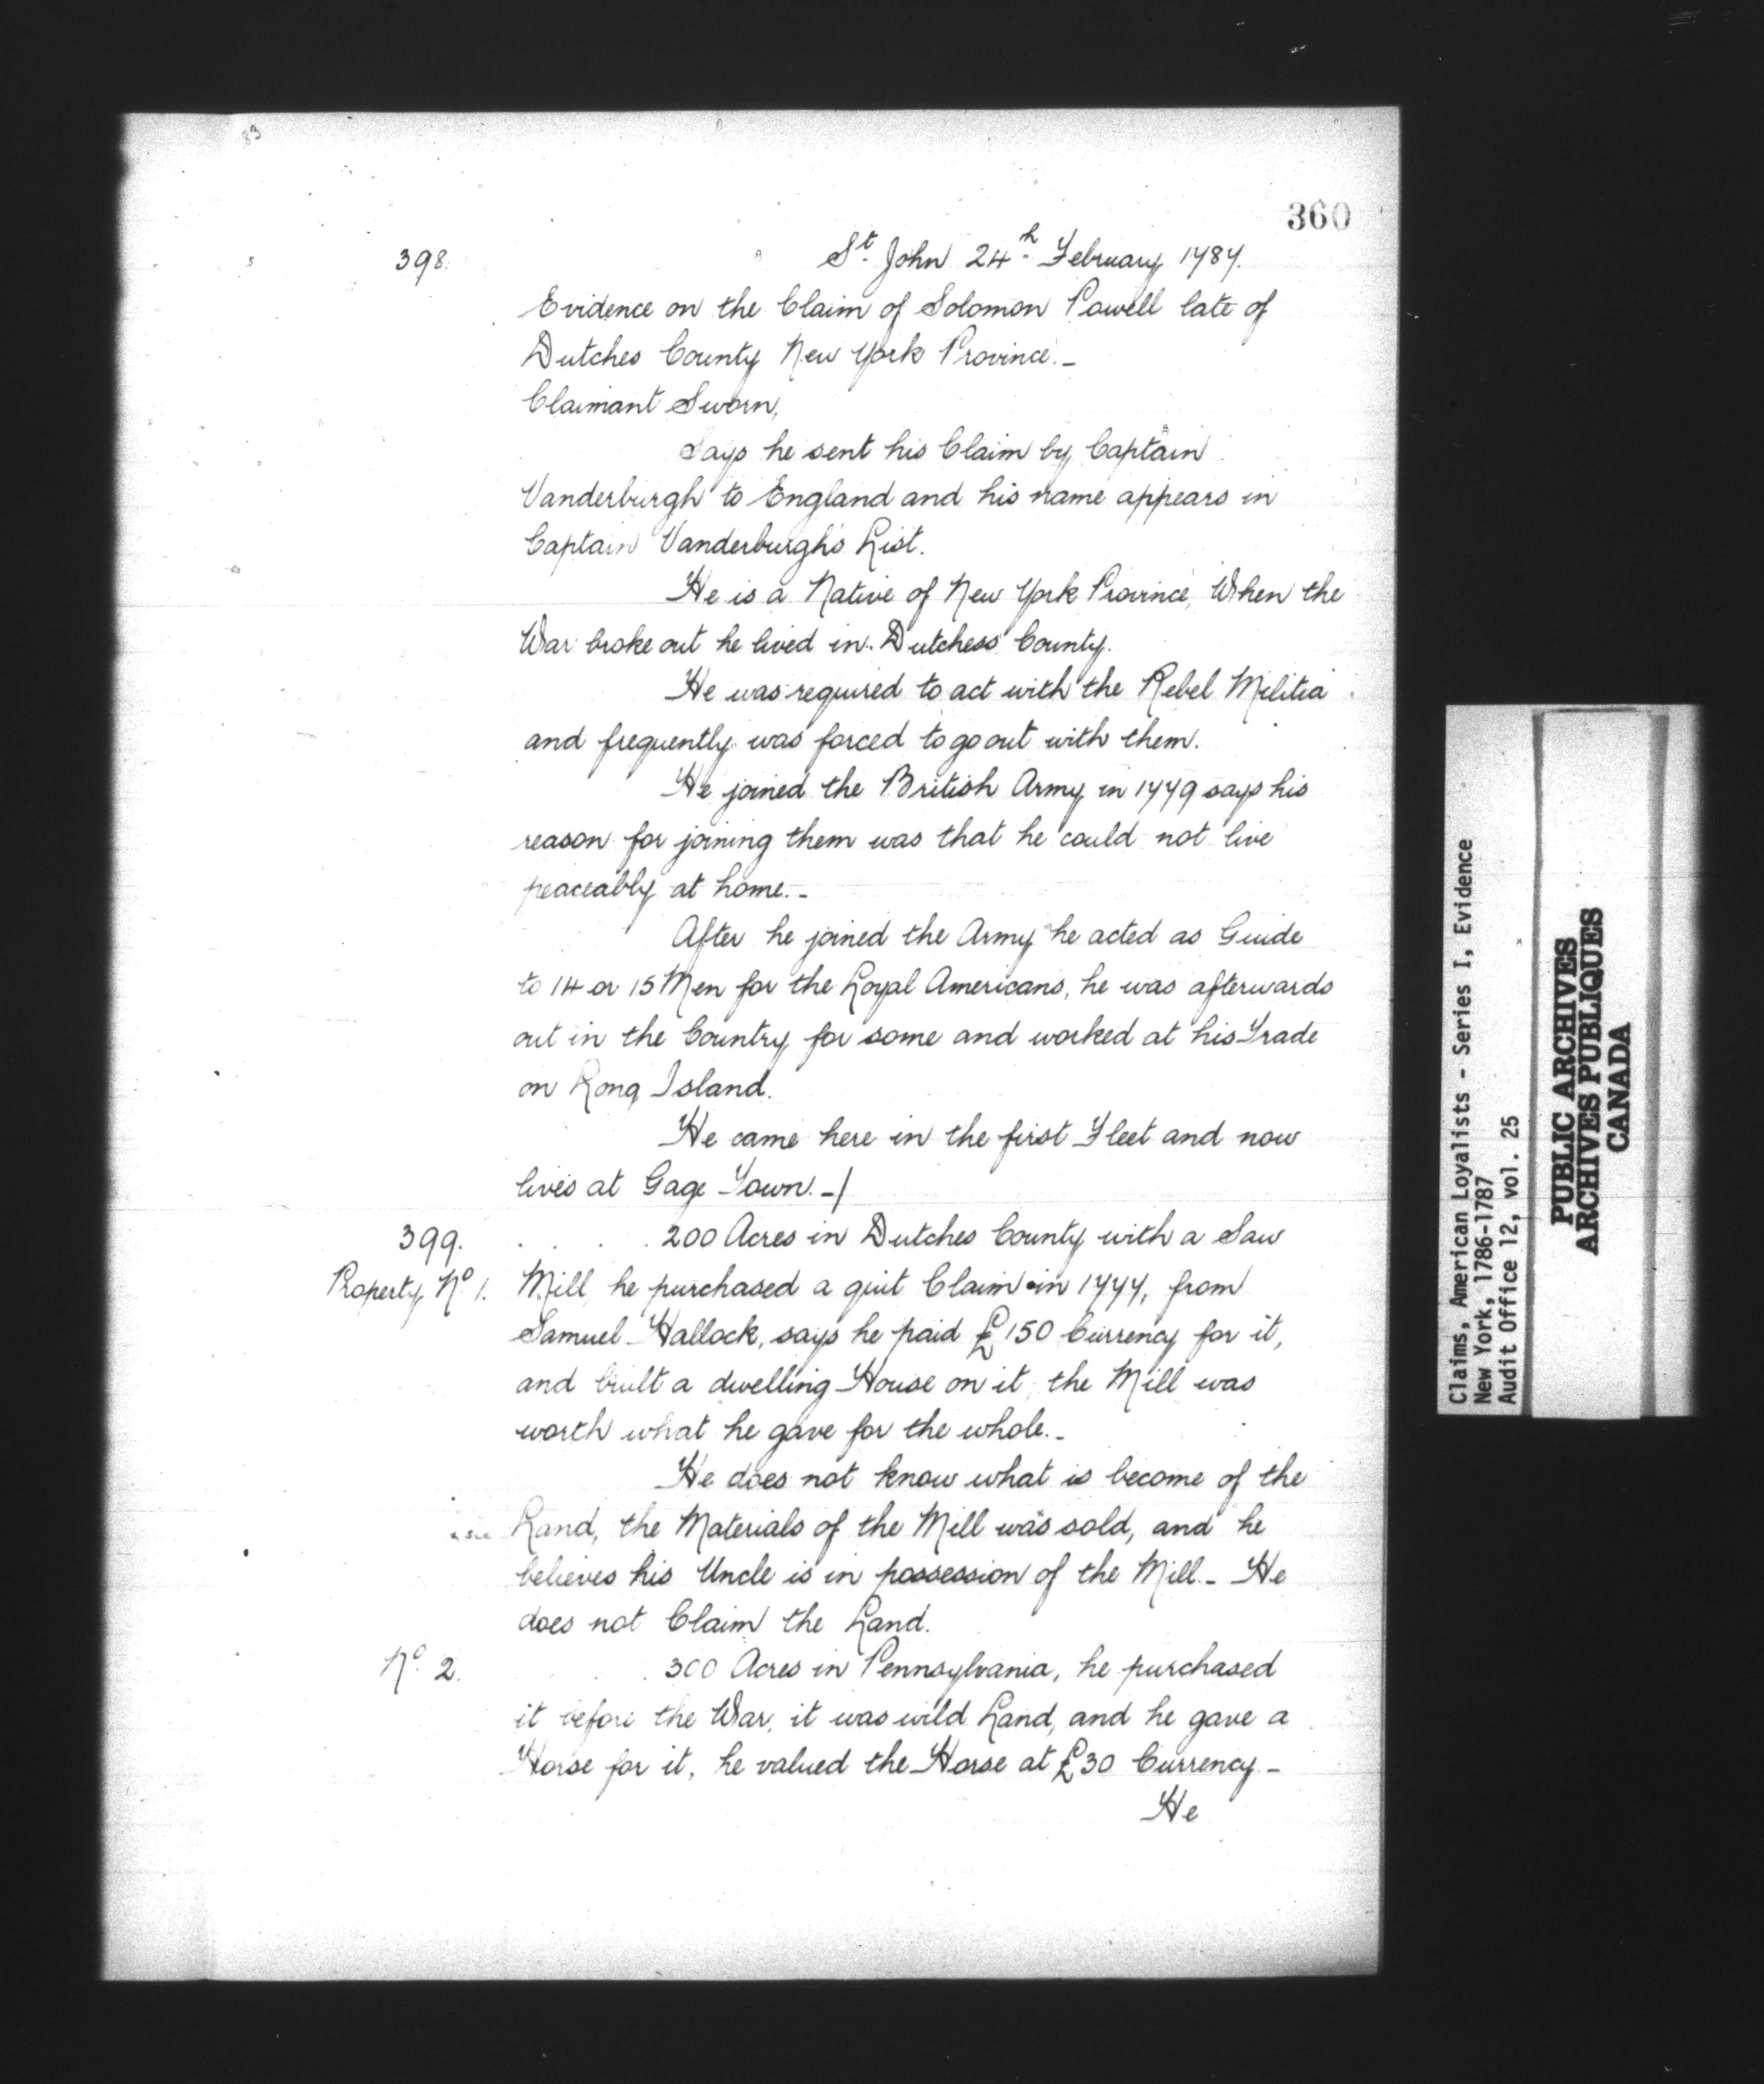 83
360
398.
St. John 24th February 1787.
Evidence on the Claim of Solomon Powell late of
Dutches County New York Province. _
Claimant Sworn,
Says he sent his Claim by Captain
Vanderburgh to England and his name appears in
Captain Vanderburgh's List.
He is a Native of New York Province, When the
War broke out he lived in Dutchess County.
He was required to act with the Rebel Militia
and frequently was forced to go out with them.
He joined the British Army in 1779 says his
reason for joining them was that he could not live
peaceably at home. _
After he joined the Army he acted as Guide
to 14 or 15 Men for the Loyal Americans, he was afterwards
out in the Country for some and worked at his Trade
on Long Island.
He came here in the first Fleet and now
lives at Gage Town. _/
399.
200 Acres in Dutches County with a Saw
Property No. 1.
Mill, he purchased a quit Claim in 1777, from
Samuel Hallock, says he paid £150 Currency for it,
and built a dwelling House on it, the Mill was
worth what he gave for the whole. _
He does not know what is become of the
Land, the Materials of the Mill was sold, and he
believes his Uncle is in possession of the Mill _ He
does not Claim the Land.
No. 2.
300 Acres in Pennsylvania, he purchased
it before the War, it was wild Land, and he gave a
Horse for it, he valued the Horse at £30 Currency _
He
Claims, American Loyalists - Series I, Evidence
New York, 1786-1787
Audit Office 12, vol. 25
PUBLIC ARCHIVES
ARCHIVES PUBLIQUES
CANADA